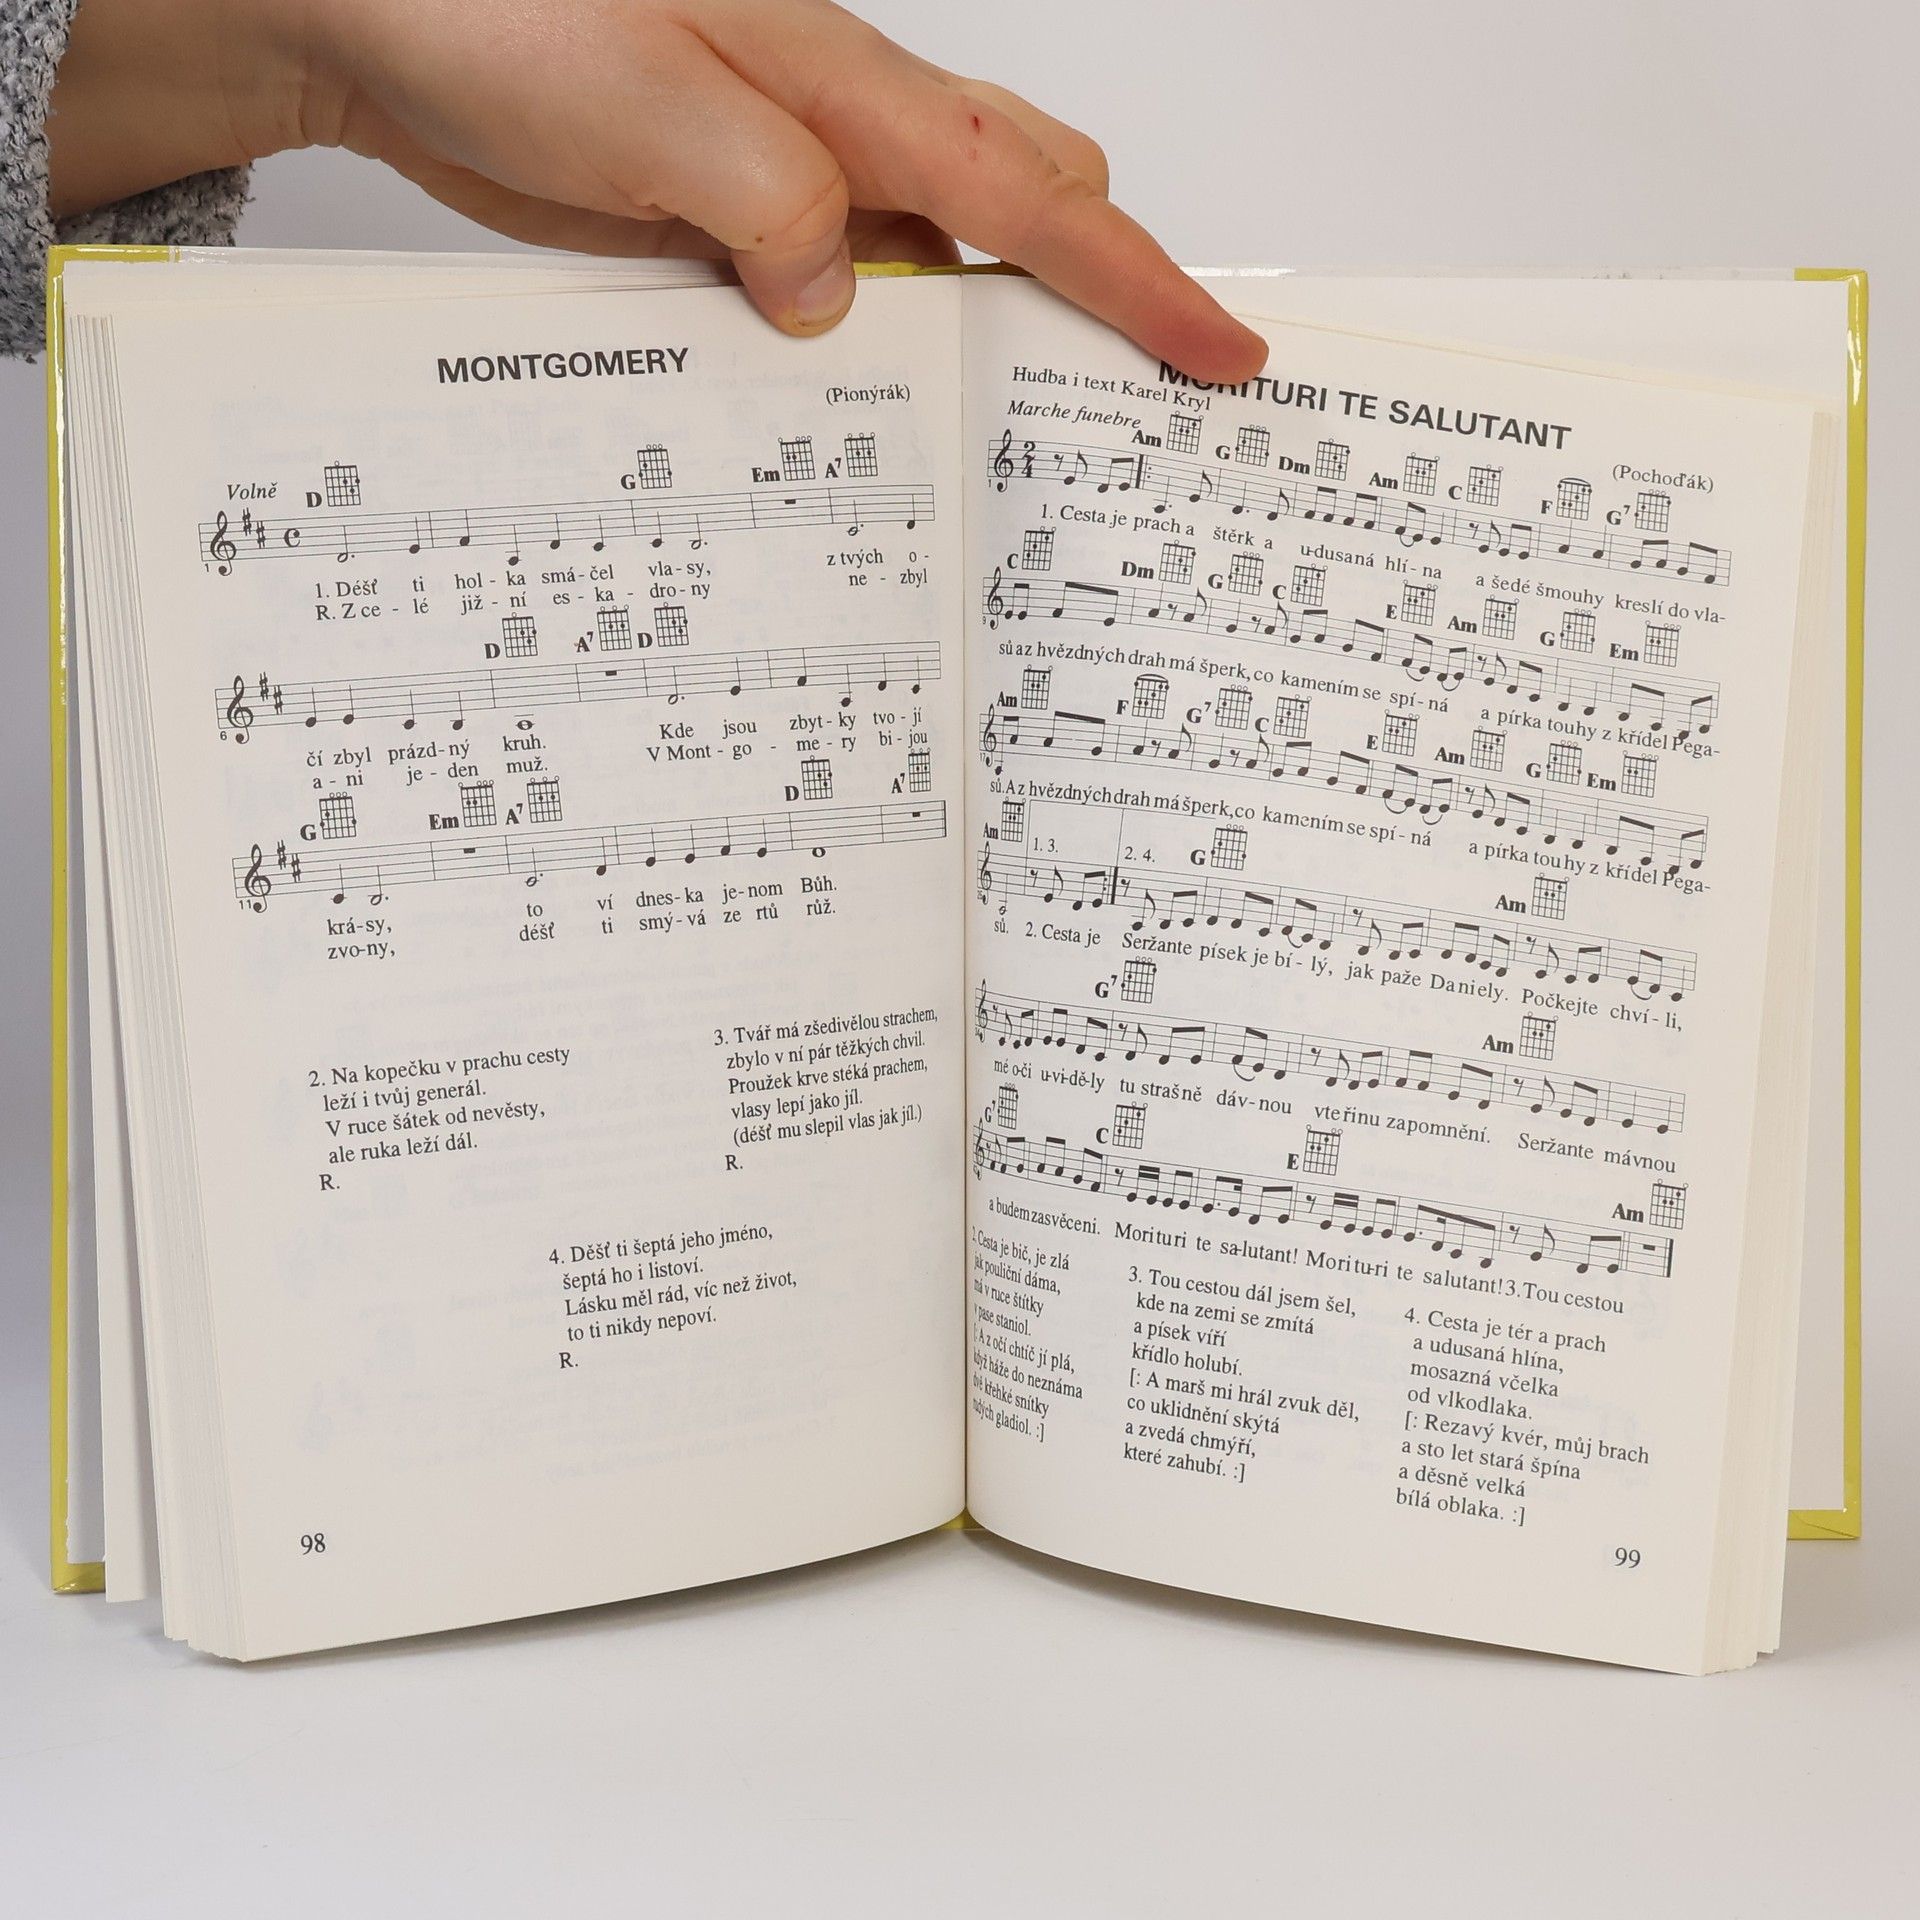 MONTGOMERY
(Pionýrák)
Volně
D G Em A7
1. Déšť ti hol - ka smá - čel vla - sy, z tvých o -
R. Z ce - lé již - ní es - ka - dro - ny ne - zbyl
D A7 D
čí zbyl prázd - ný kruh. Kde jsou zbyt - ky tvo - jí
a - ni je - den muž. V Mont - go - me - ry bi - jou
G Em A7 D A7
krá - sy, to ví dnes - ka je - nom Bůh.
zvo - ny, déšť ti smý - vá ze rtů růž.
2. Na kopečku v prachu cesty
leží i tvůj generál.
V ruce šátek od nevěsty,
ale ruka leží dál.
R.
3. Tvář má zšedivělou strachem,
zbylo v ní pár těžkých chvil.
Proužek krve stéká prachem,
vlasy lepí jako jíl.
(déšť mu slepil vlas jak jíl.)
R.
4. Děšť ti šeptá jeho jméno,
šeptá ho i listoví.
Lásku měl rád, víc než život,
to ti nikdy nepoví.
R.
98
MORITURI TE SALUTANT
Hudba i text Karel Kryl
(Pochoďák)
Marche funebre
Am G Dm Am C F G7
1. Cesta je prach a štěrk a u-dusaná hlí - na a šedé šmouhy kreslí do vla-
C Dm G C E Am G Em
sů a z hvězdných drah má šperk, co kamením se spí - ná a pírka touhy z křídel Pega-
Am F G7 C E Am G Em
sů. A z hvězdných drah má šperk, co kamením se spí - ná a pírka touhy z křídel Pega-
Am 1. 3. 2. 4. G Am
sů. 2. Cesta je Seržante písek je bí - lý, jak paže Daniely. Počkejte chví - li,
G7 Am
mé o-či u-vi-dě-ly tu strašně dáv - nou vteřinu zapomnění. Seržante mávnou
G7 C E Am
a budem zasvěceni. Morituri te sa-lutant! Moritu-ri te salutant! 3. Tou cestou
2. Cesta je bič, je zlá
jak pouliční dáma,
má v ruce štítky
v pase staniol.
[: A z očí chtíč jí plá,
když háže do neznáma
dvě křehké snítky
rudých gladiol. :]
3. Tou cestou dál jsem šel,
kde na zemi se zmítá
a písek víří
křídlo holubí.
[: A marš mi hrál zvuk děl,
co uklidnění skýtá
a zvedá chmýří,
které zahubí. :]
4. Cesta je tér a prach
a udusaná hlína,
mosazná včelka
od vlkodlaka.
[: Rezavý kvér, můj brach
a sto let stará špína
a děsně velká
bílá oblaka. :]
99